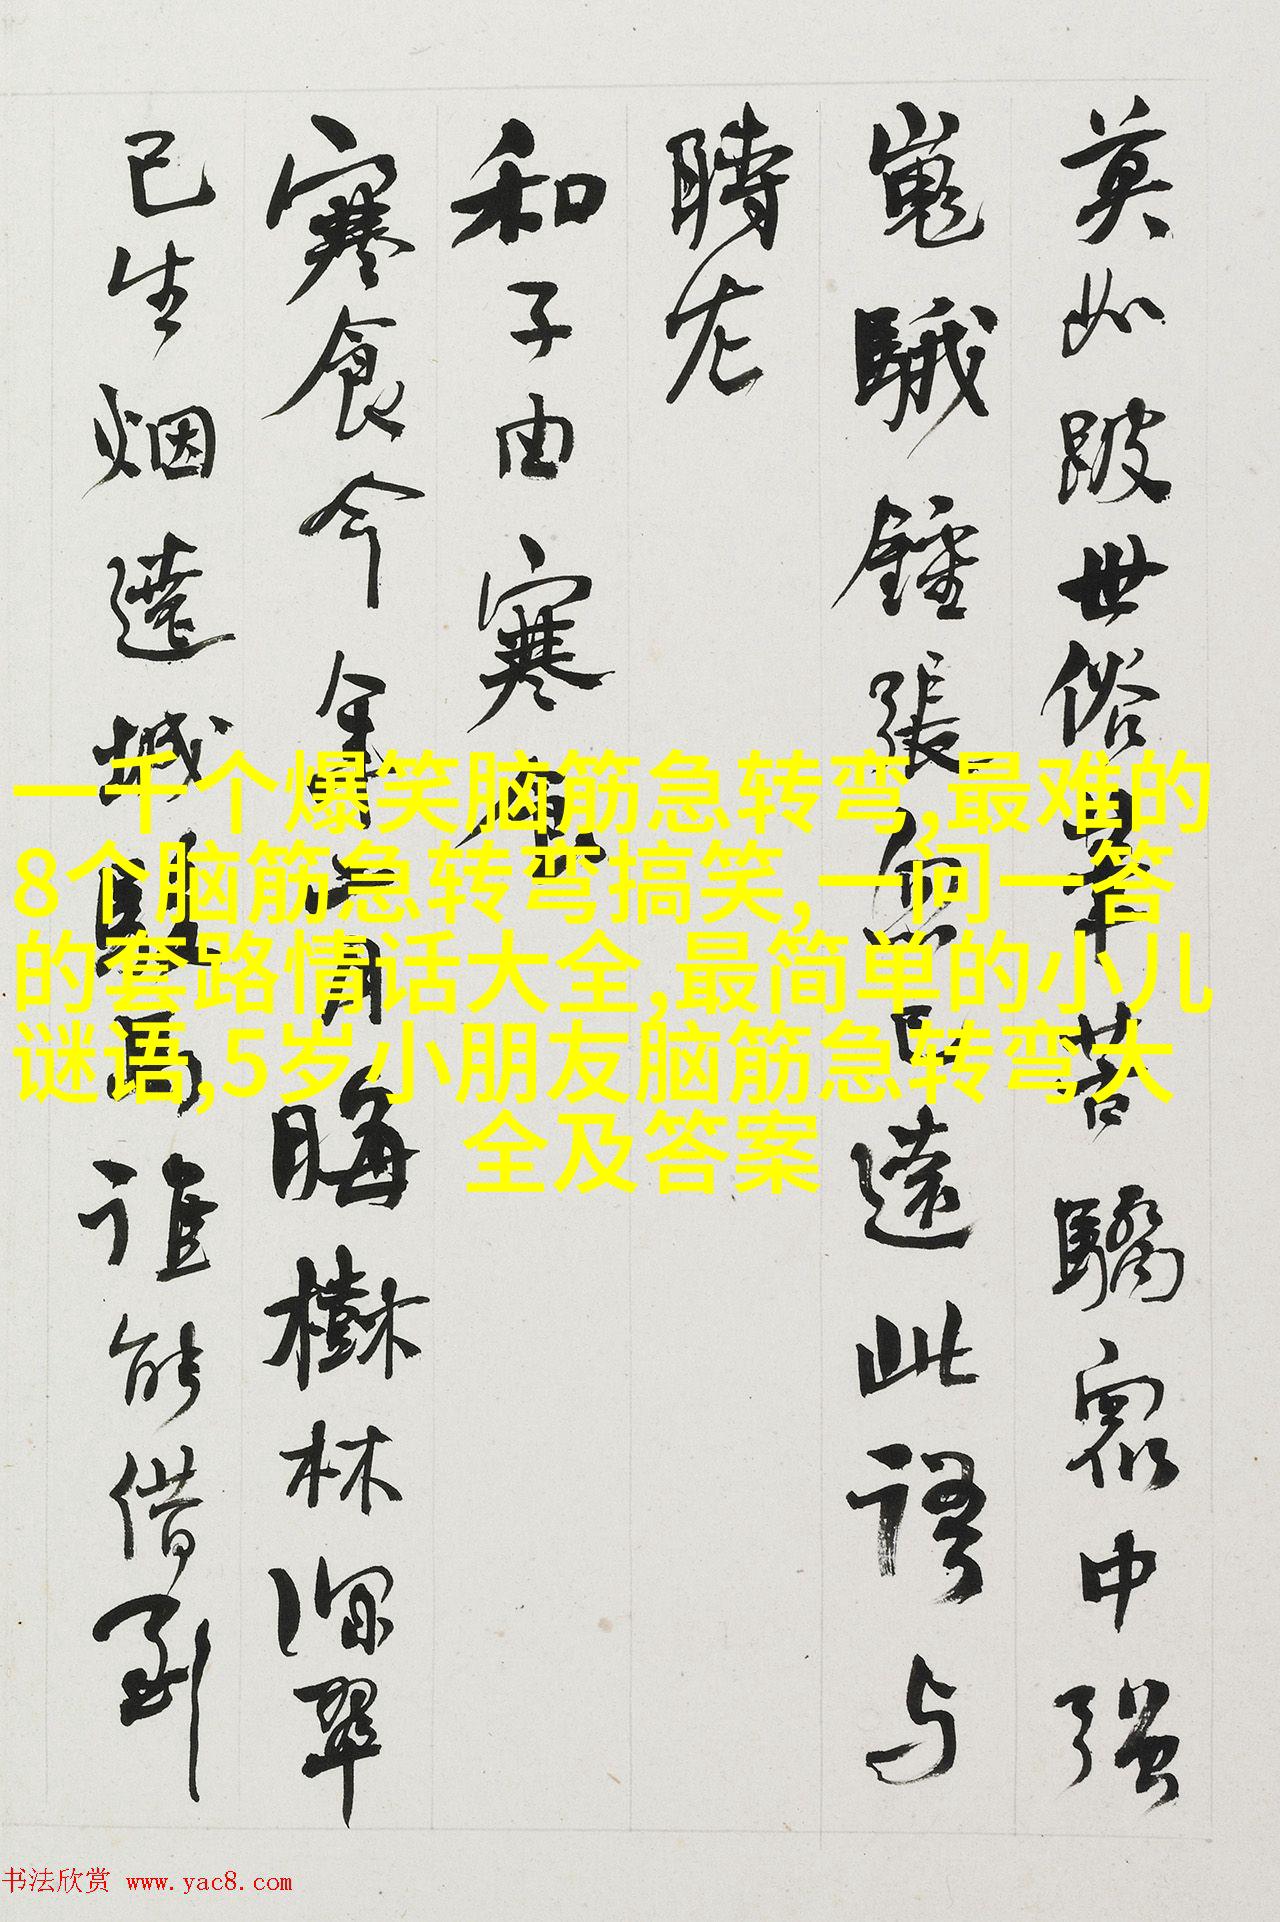 莫如跛世俗筆苦驕眾中強
嵬騀鍾張忽已遠此語与
時左
和子由寒食
寒食今年二月晦樹林深翠
已生烟遶城駿馬誰能借到
一千个爆笑脑筋急转弯,最难的
8个脑筋急转弯搞笑,一问一答
的套路情话大全,最简单的小儿
谜语,5岁小朋友脑筋急转弯大
全及答案
书法欣赏 www.yac8.com